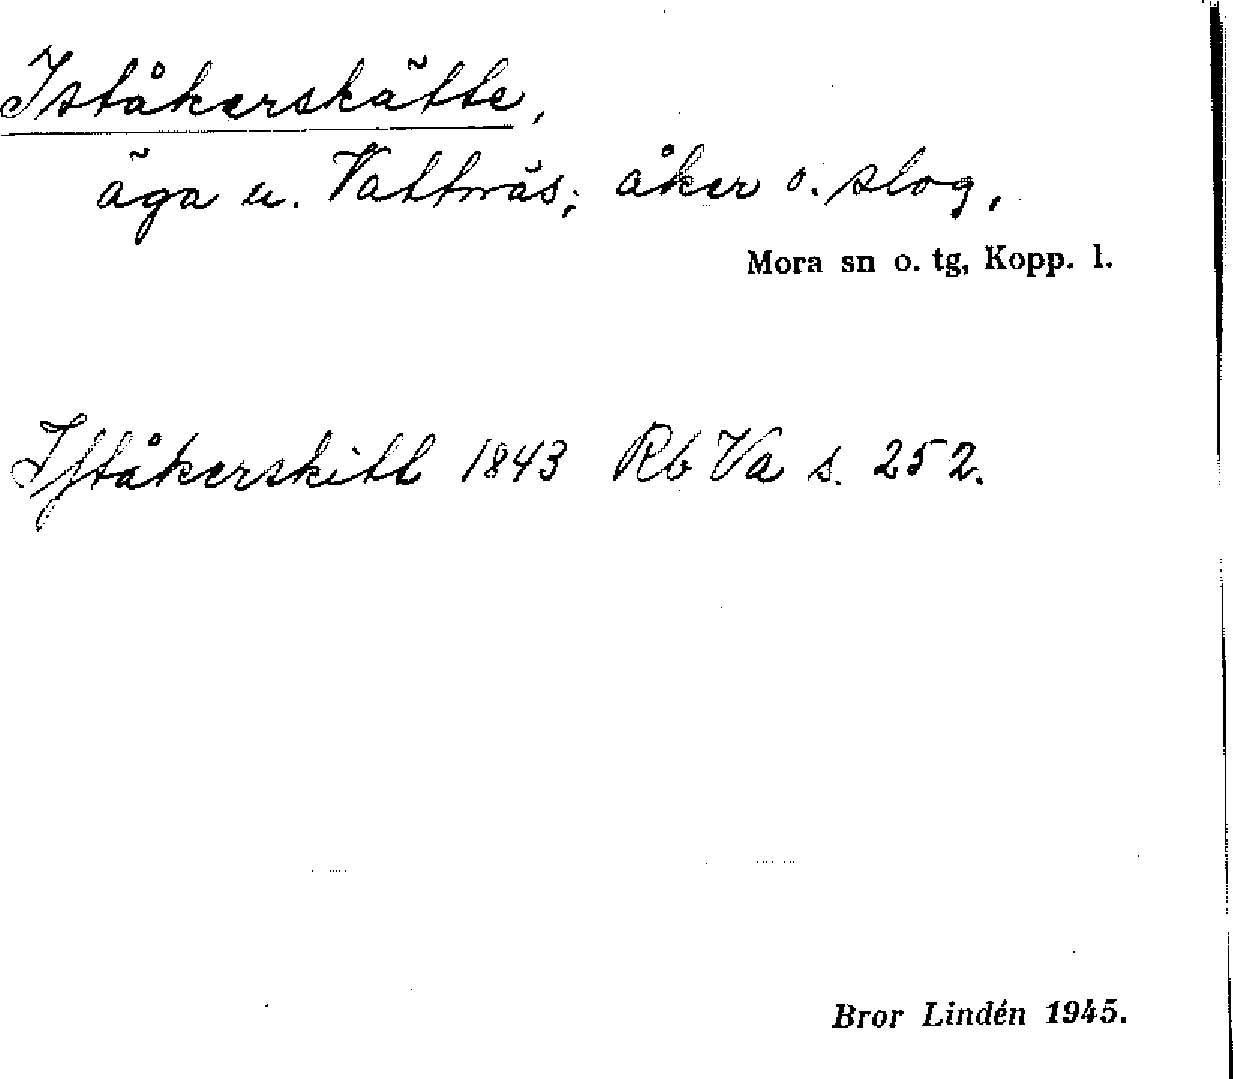 Iståkerskätte,
äga u. Vattnäs; åker o. slog,
Mora sn o. tg, Kopp. l.
Iſtåkerskitt 1843 Rb Va s. 252.
Bror Lindén 1945.